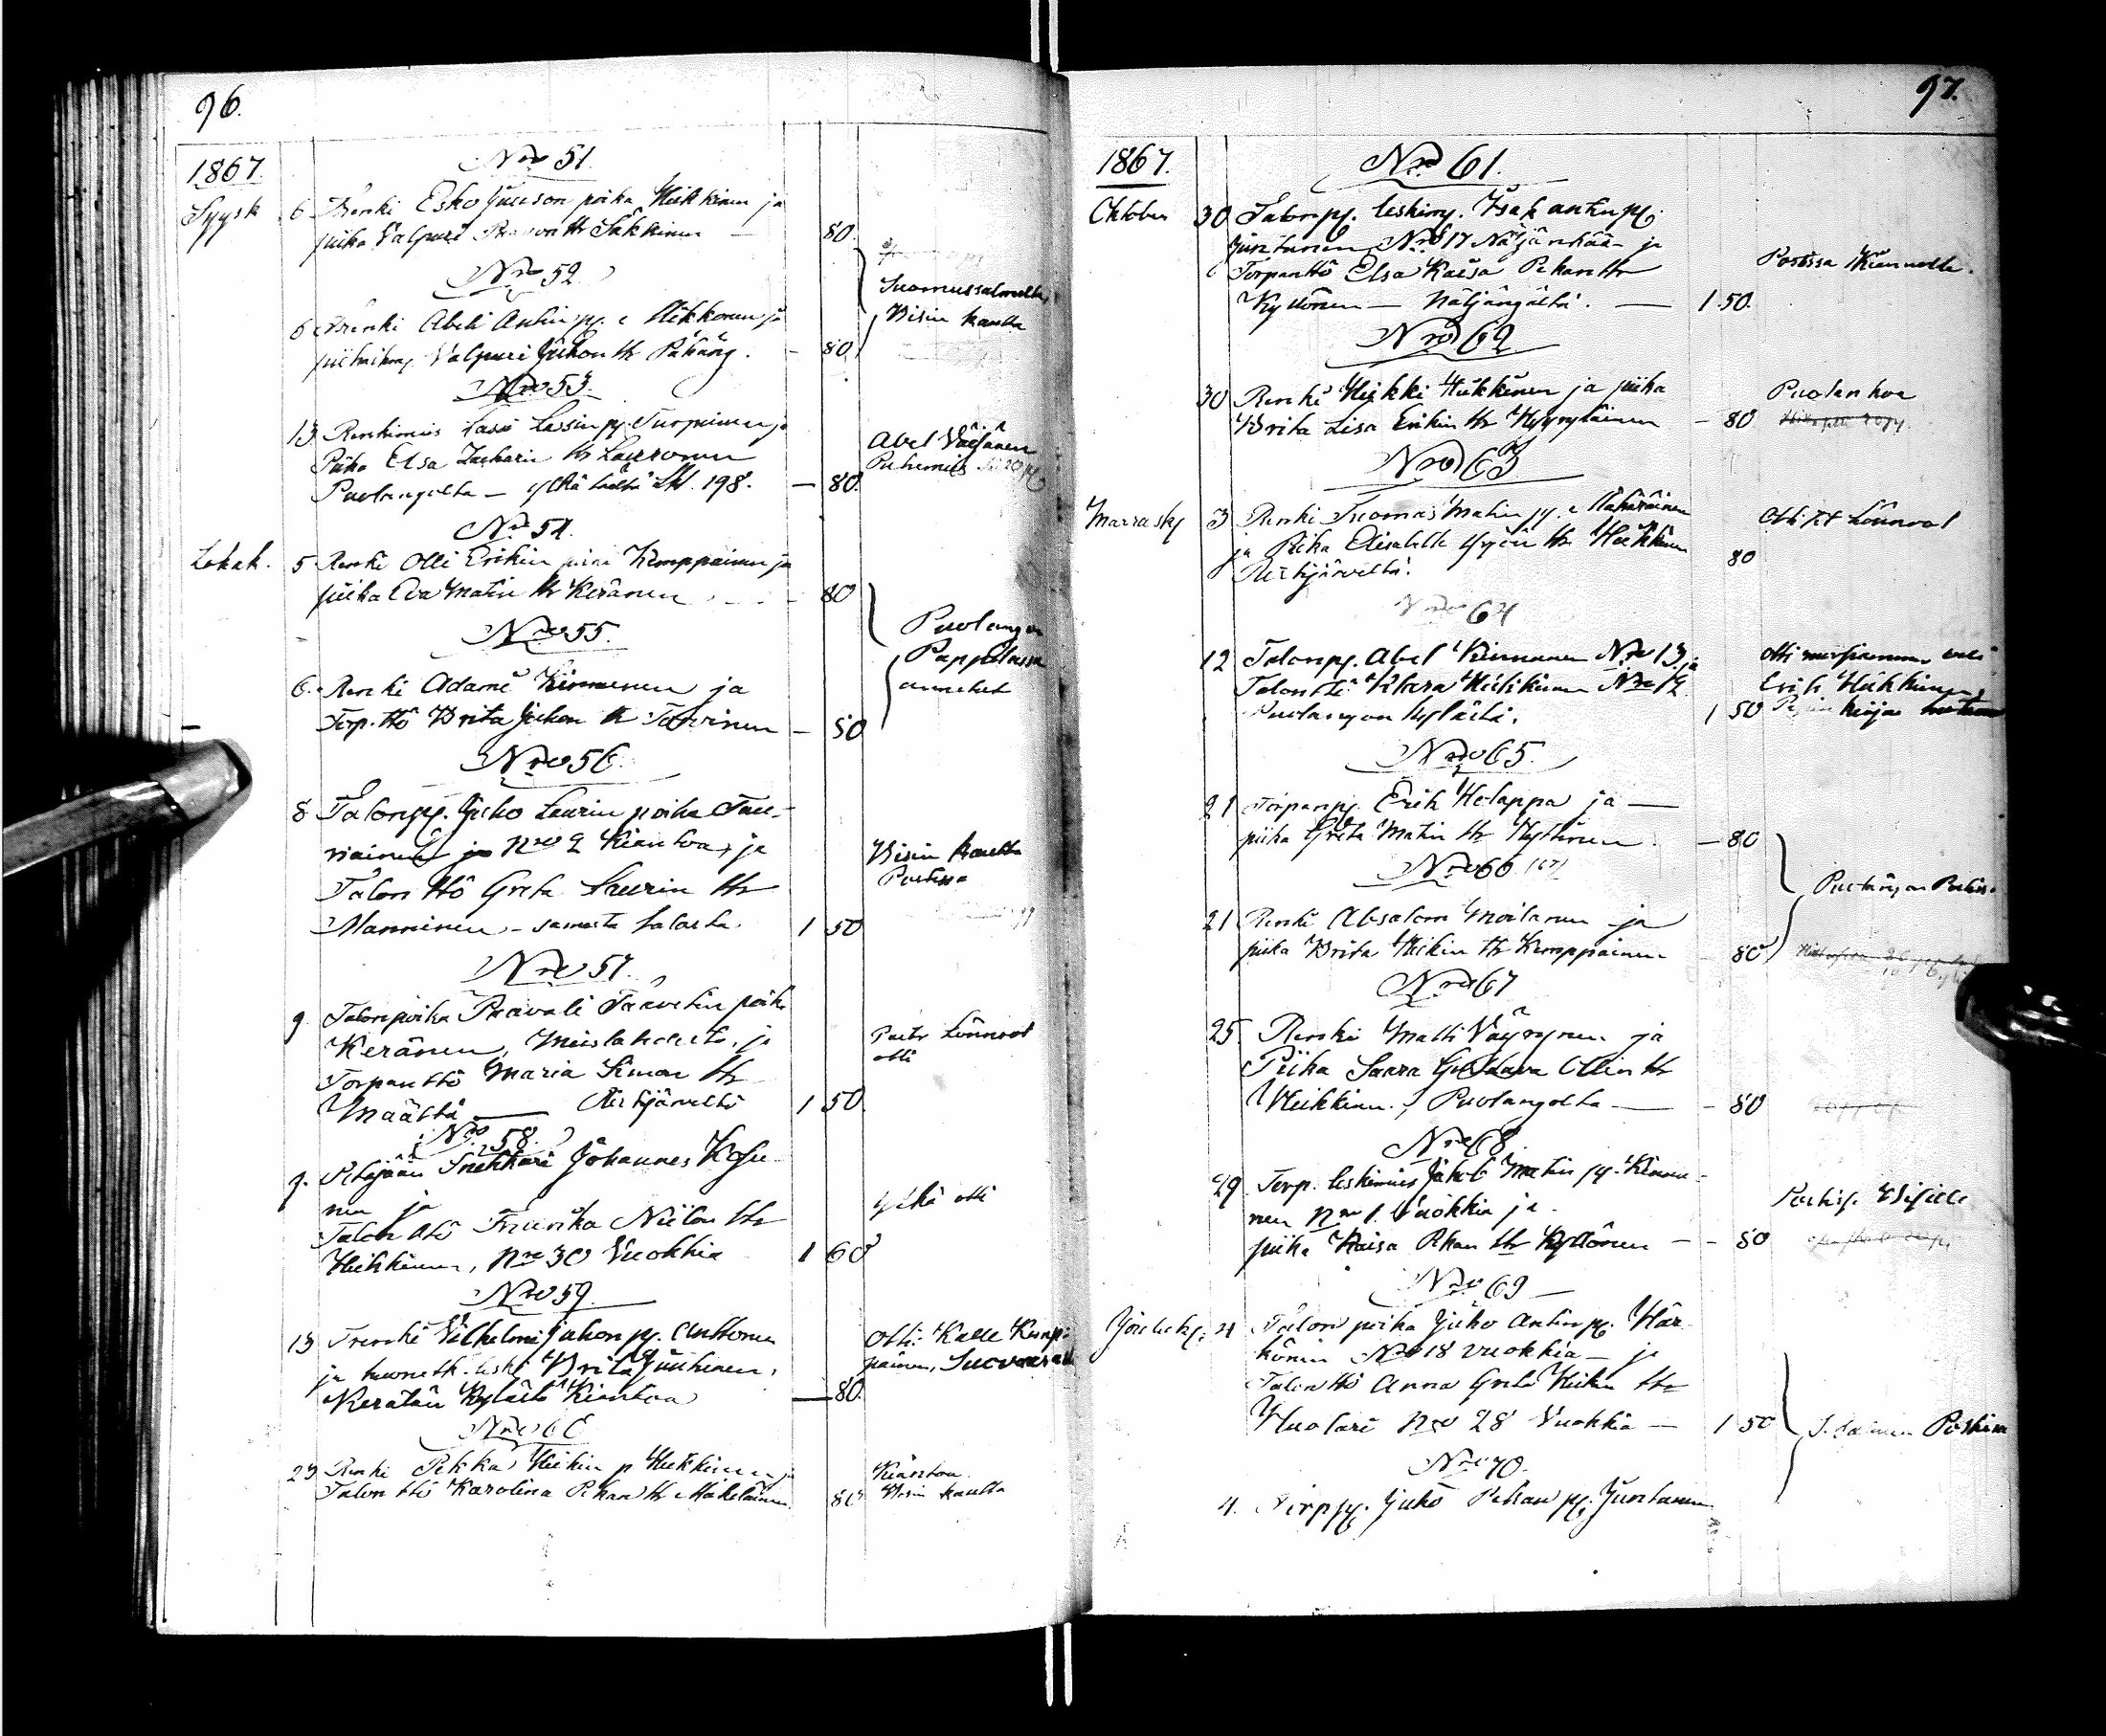 96.
1867.
Nro 51.
Syysk 6 Renki Esko Juuson poika Heikkinen ja
piika Valpuri Paavon tr Säkkinen — 80
Nro 52.
6 Renki Abeli Antin pg. Mikkonen ja
Valpuri Juhon tr — 80
Suomussalmelta
Wisin kautta
Nro 53.
13 Renkimies Lassi Lassin pg Turpeinen ja
Piika Elsa Zacharin tr Lauronen
Puolangalta — 198. — 80.
Abel Väisänen
Puhemies
Nro 54.
Lokak. 5 Renki Olli Erikin poika Kemppainen ja
piika Eva Matin tr Keränen — 80
Nro 55.
6. Renki Adami Kinnunen ja
Torp. ttö Brita Juhon tr Tervinen — 80
Puolangan
Pappilassa
annetut
Nro 56.
8 Talonpg. Juho Laurin poika Tau-
riainen ja Nro 2 Kianta, ja
Talon ttö Greta Laurin tr
Manninen — samasta talosta. 1 50
Wisin kautta
Postissa
Nro 57.
9 Talonpoika Paavali Taavetin poika
Keränen, Mieslahdesta, ja
Torpan ttö Maria Simon tr
Määttä — Ristijärveltä 1 50
Pastr Lönnrot
otti
Nro 58.
9. Pitäjään Snikkari Johannes Kosu-
nen ja
Talon ttö Friarika Niilon tr
Heikkinen, Nro 30 Vuokkia 1 60
Ylkä otti
Nro 59.
13 Trenki Vilhelmi Juhon pg. Anttonen
ja leski Brita Juntunen,
Kerälän Kylästä Kiantaa — 80.
Otti: Kalle Kemp-
painen,
Nro 60
23 Renki Pekka Heikin p Heikkinen ja
Talon ttö Karolina Pekan tr Mäkeläinen 80
Kiantaa
Wisin kautta
97.
1867.
Nro 61.
Oktober 30 Talonpg. leskimg. Isak Antin pg.
Juntunen Nro 17 Näljänkää ja
Torpan ttö Elsa Kaisa Pekan tr
Kyllönen — Näljängältä. — 1 50.
Postissa Kiannalle.
Nro 62
30 Renki Heikki Heikkinen ja piika
Brita Lisa Erikin tr Hyyryläinen — 80
Puolankaa
Nro 63
Marrasky 3 Renki Tuomas Matin pg.
ja Piika Elisabeth Yrjön tr Heikkinen
Ristijärveltä. 80
Otti Lönnrot
Nro 64
12 Talonpg. Abel Kinnunen Nro 13 ja
Talon ttö Klara Heikkinen Nro 12
Puolangan Kylästä. 1 50
otti morsiammen veli
Erik Heikkinen,
kirja
Nro 65.
21 Torpanpg. Erik Holappa ja —
piika Greta Matin tr — 80
Nro 66 (67)
21 Renki Absalom Moilanen ja
piika Brita Heikin tr Kemppainen 80
Puolangan Postissa
Nro 67
25 Renki Matti Väyrynen ja
Piika Saara Gustava Ollin tr
Heikkinen, Puolangolta — 80
Nro 68
29 Torp. leskimies Jakob Matin pg. Kinnu-
nen Nro 1. Vuokkia ja
piika Kaisa Pekan tr Kyllönen — 80
Postiss. Wisille
Nro 69
Jouluky: 4 Talon poika Juho Antin pg. Här-
könen Nro 18 Vuokkia — ja
Talon ttö Anna Greta Heikin tr
Huotari Nro 28 Vuokkia — 1 50
Postissa
Nro 70.
4. Torppg. Juho Pekan pg. Juntunen